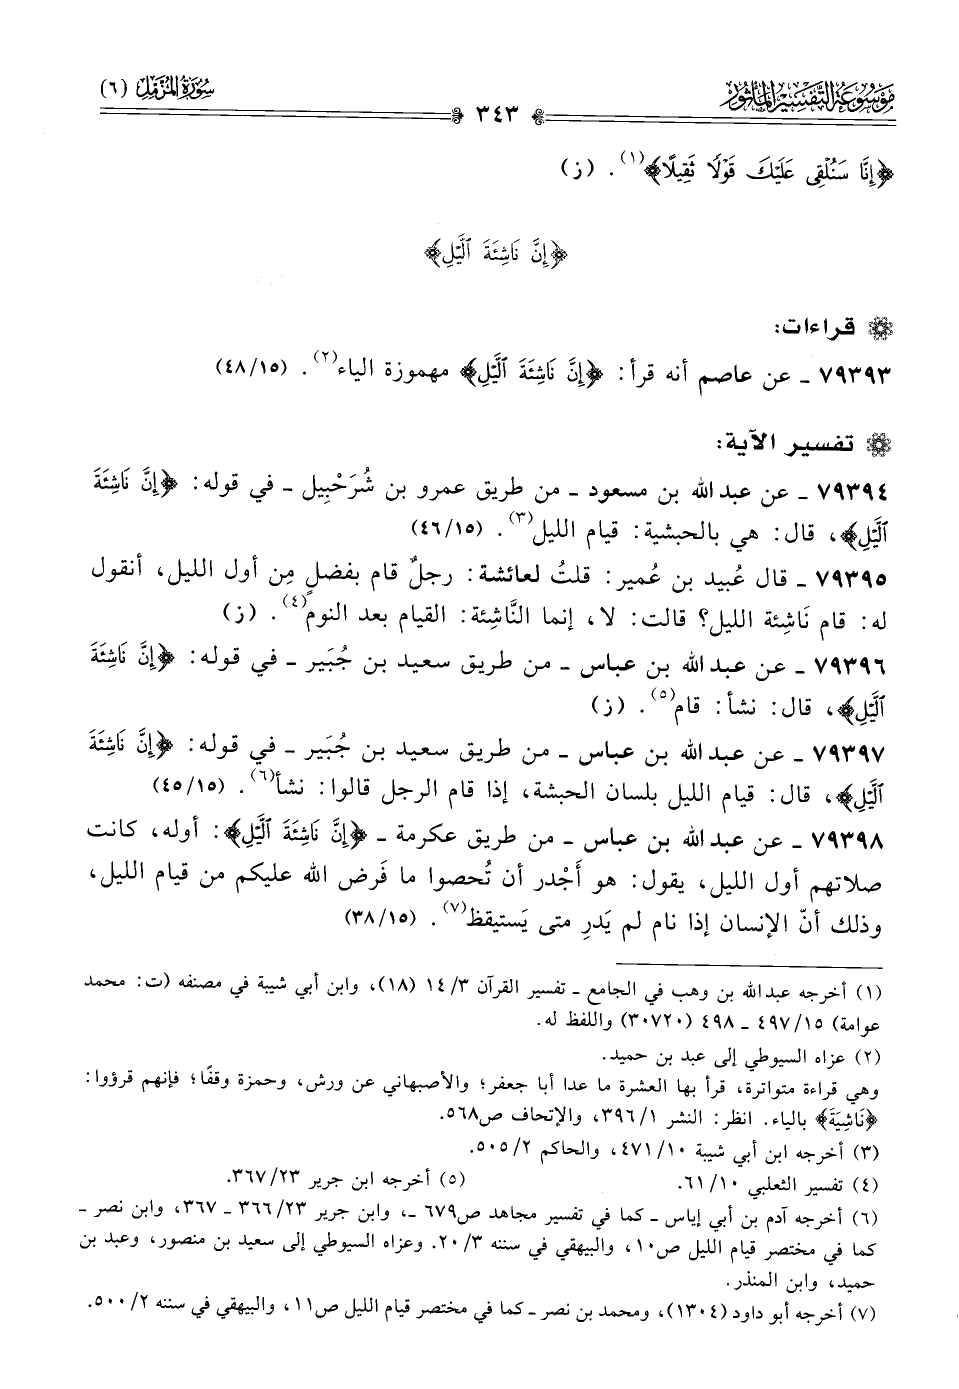 موسوعة التفسير المأثور
سورة المزمل (٦)
٣٤٣
﴿إِنَّا سَنُلْقِى عَلَيْكَ قَوْلًا ثَقِيلًا﴾(١). (ز)
﴿إِنَّ نَاشِئَةَ ٱلَّيْلِ﴾
قراءات:
٧٩٣٩٣ ـ عن عاصم أنه قرأ: ﴿إِنَّ نَاشِئَةَ ٱلَّيْلِ﴾ مهموزة الياء(٢). (٤٨/١٥)
تفسير الآية:
٧٩٣٩٤ ـ عن عبد الله بن مسعود ـ من طريق عمرو بن شُرَحْبِيل ـ في قوله: ﴿إِنَّ نَاشِئَةَ
ٱلَّيْلِ﴾، قال: هي بالحبشية: قيام الليل(٣). (٤٦/١٥)
٧٩٣٩٥ ـ قال عُبيد بن عُمير: قلتُ لعائشة: رجلٌ قام بفضلٍ مِن أول الليل، أنقول
له: قام نَاشِئة الليل؟ قالت: لا، إنما النَّاشِئة: القيام بعد النوم(٤). (ز)
٧٩٣٩٦ ـ عن عبد الله بن عباس ـ من طريق سعيد بن جُبَير ـ في قوله: ﴿إِنَّ نَاشِئَةَ
ٱلَّيْلِ﴾، قال: نشأ: قام(٥). (ز)
٧٩٣٩٧ ـ عن عبد الله بن عباس ـ من طريق سعيد بن جُبَير ـ في قوله: ﴿إِنَّ نَاشِئَةَ
ٱلَّيْلِ﴾، قال: قيام الليل بلسان الحبشة، إذا قام الرجل قالوا: نشأ(٦). (٤٥/١٥)
٧٩٣٩٨ ـ عن عبد الله بن عباس ـ من طريق عكرمة ـ ﴿إِنَّ نَاشِئَةَ ٱلَّيْلِ﴾: أوله، كانت
صلاتهم أول الليل، يقول: هو أَجْدر أن تُحصوا ما فَرض الله عليكم من قيام الليل،
وذلك أنّ الإنسان إذا نام لم يَدرِ متى يَستيقظ(٧). (٣٨/١٥)
(١) أخرجه عبد الله بن وهب في الجامع ـ تفسير القرآن ١٤/٣ (١٨)، وابن أبي شيبة في مصنفه (ت: محمد
عوامة) ٤٩٧/١٥ ـ ٤٩٨ (٣٠٧٢٠) واللفظ له.
(٢) عزاه السيوطي إلى عبد بن حميد.
وهي قراءة متواترة، قرأ بها العشرة ما عدا أبا جعفر؛ والأصبهاني عن ورش، وحمزة وقفًا؛ فإنهم قرؤوا:
﴿نَاشِيَةَ﴾ بالياء. انظر: النشر ٣٩٦/١، والإتحاف ص٥٦٨.
(٣) أخرجه ابن أبي شيبة ٤٧١/١٠، والحاكم ٥٠٥/٢.
(٤) تفسير الثعلبي ٦١/١٠. (٥) أخرجه ابن جرير ٣٦٧/٢٣.
(٦) أخرجه آدم بن أبي إياس ـ كما في تفسير مجاهد ص٦٧٩ ـ، وابن جرير ٣٦٦/٢٣ ـ ٣٦٧، وابن نصر ـ
كما في مختصر قيام الليل ص١٠، والبيهقي في سننه ٢٠/٣. وعزاه السيوطي إلى سعيد بن منصور، وعبد بن
حميد، وابن المنذر.
(٧) أخرجه أبو داود (١٣٠٤)، ومحمد بن نصر ـ كما في مختصر قيام الليل ص١١، والبيهقي في سننه ٥٠٠/٢.